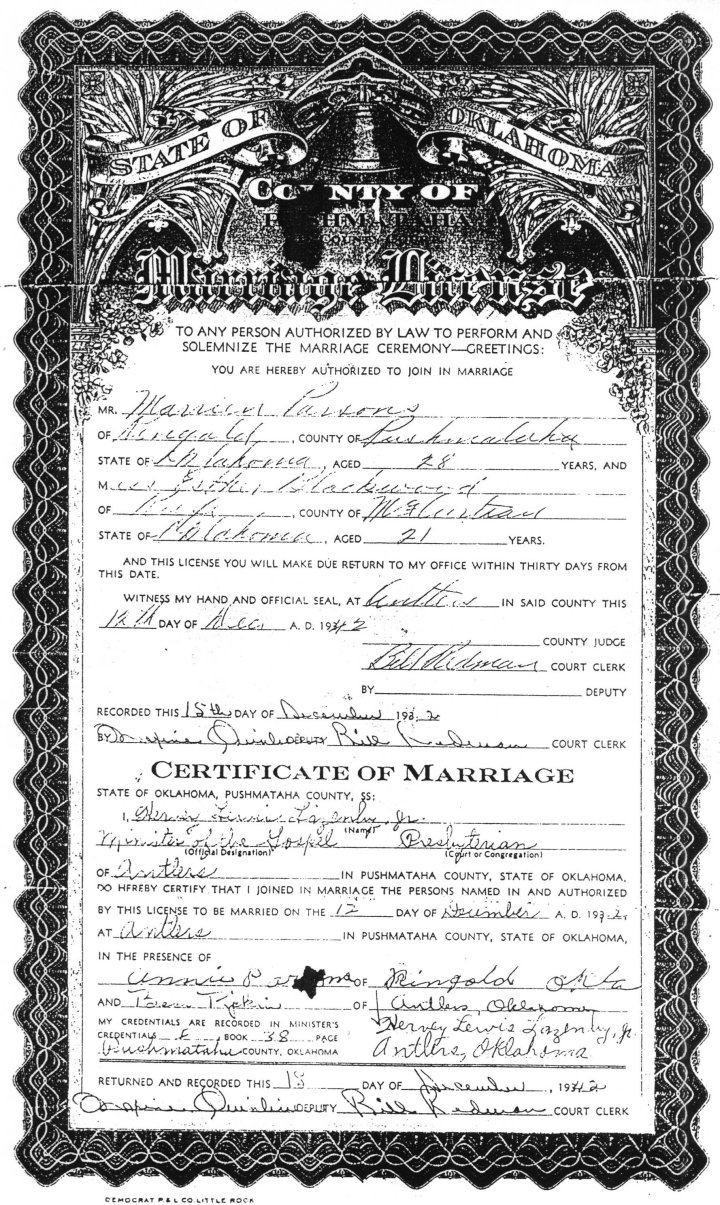 STATE OF OKLAHOMA
COUNTY OF
PUSHMATAHA
Marriage License
TO ANY PERSON AUTHORIZED BY LAW TO PERFORM AND
SOLEMNIZE THE MARRIAGE CEREMONY—GREETINGS:
YOU ARE HEREBY AUTHORIZED TO JOIN IN MARRIAGE
MR. Parsons
OF Ringold, COUNTY OF Pushmataha
STATE OF Oklahoma, AGED 28 YEARS, AND
Miss Esther Blackwood
OF Rufe, COUNTY OF McCurtain
STATE OF Oklahoma, AGED 21 YEARS.
AND THIS LICENSE YOU WILL MAKE DUE RETURN TO MY OFFICE WITHIN THIRTY DAYS FROM
THIS DATE.
WITNESS MY HAND AND OFFICIAL SEAL, AT Antlers IN SAID COUNTY THIS
12th DAY OF Dec. A. D. 1942
COUNTY JUDGE
Bill Redman COURT CLERK
BY DEPUTY
RECORDED THIS 15th DAY OF December 193 2
BY DEPUTY Bill Redman COURT CLERK
CERTIFICATE OF MARRIAGE
STATE OF OKLAHOMA, PUSHMATAHA COUNTY, SS:
I, Hervey Lewis Lazenby, Jr.
(Name)
Minister of the Gospel Presbyterian
(Official Designation) (Court or Congregation)
OF Antlers IN PUSHMATAHA COUNTY, STATE OF OKLAHOMA,
DO HEREBY CERTIFY THAT I JOINED IN MARRIAGE THE PERSONS NAMED IN AND AUTHORIZED
BY THIS LICENSE TO BE MARRIED ON THE 12 DAY OF December A. D. 193 2,
AT Antlers IN PUSHMATAHA COUNTY, STATE OF OKLAHOMA,
IN THE PRESENCE OF
Annie Parsons OF Ringold Okla
AND OF Antlers, Oklahoma
MY CREDENTIALS ARE RECORDED IN MINISTER'S Hervey Lewis Lazenby, Jr.
CREDENTIALS BOOK 38 PAGE Antlers, Oklahoma
Pushmataha COUNTY, OKLAHOMA
RETURNED AND RECORDED THIS 15 DAY OF December, 1942
DEPUTY Bill Redman COURT CLERK
DEMOCRAT P. & L. CO. LITTLE ROCK